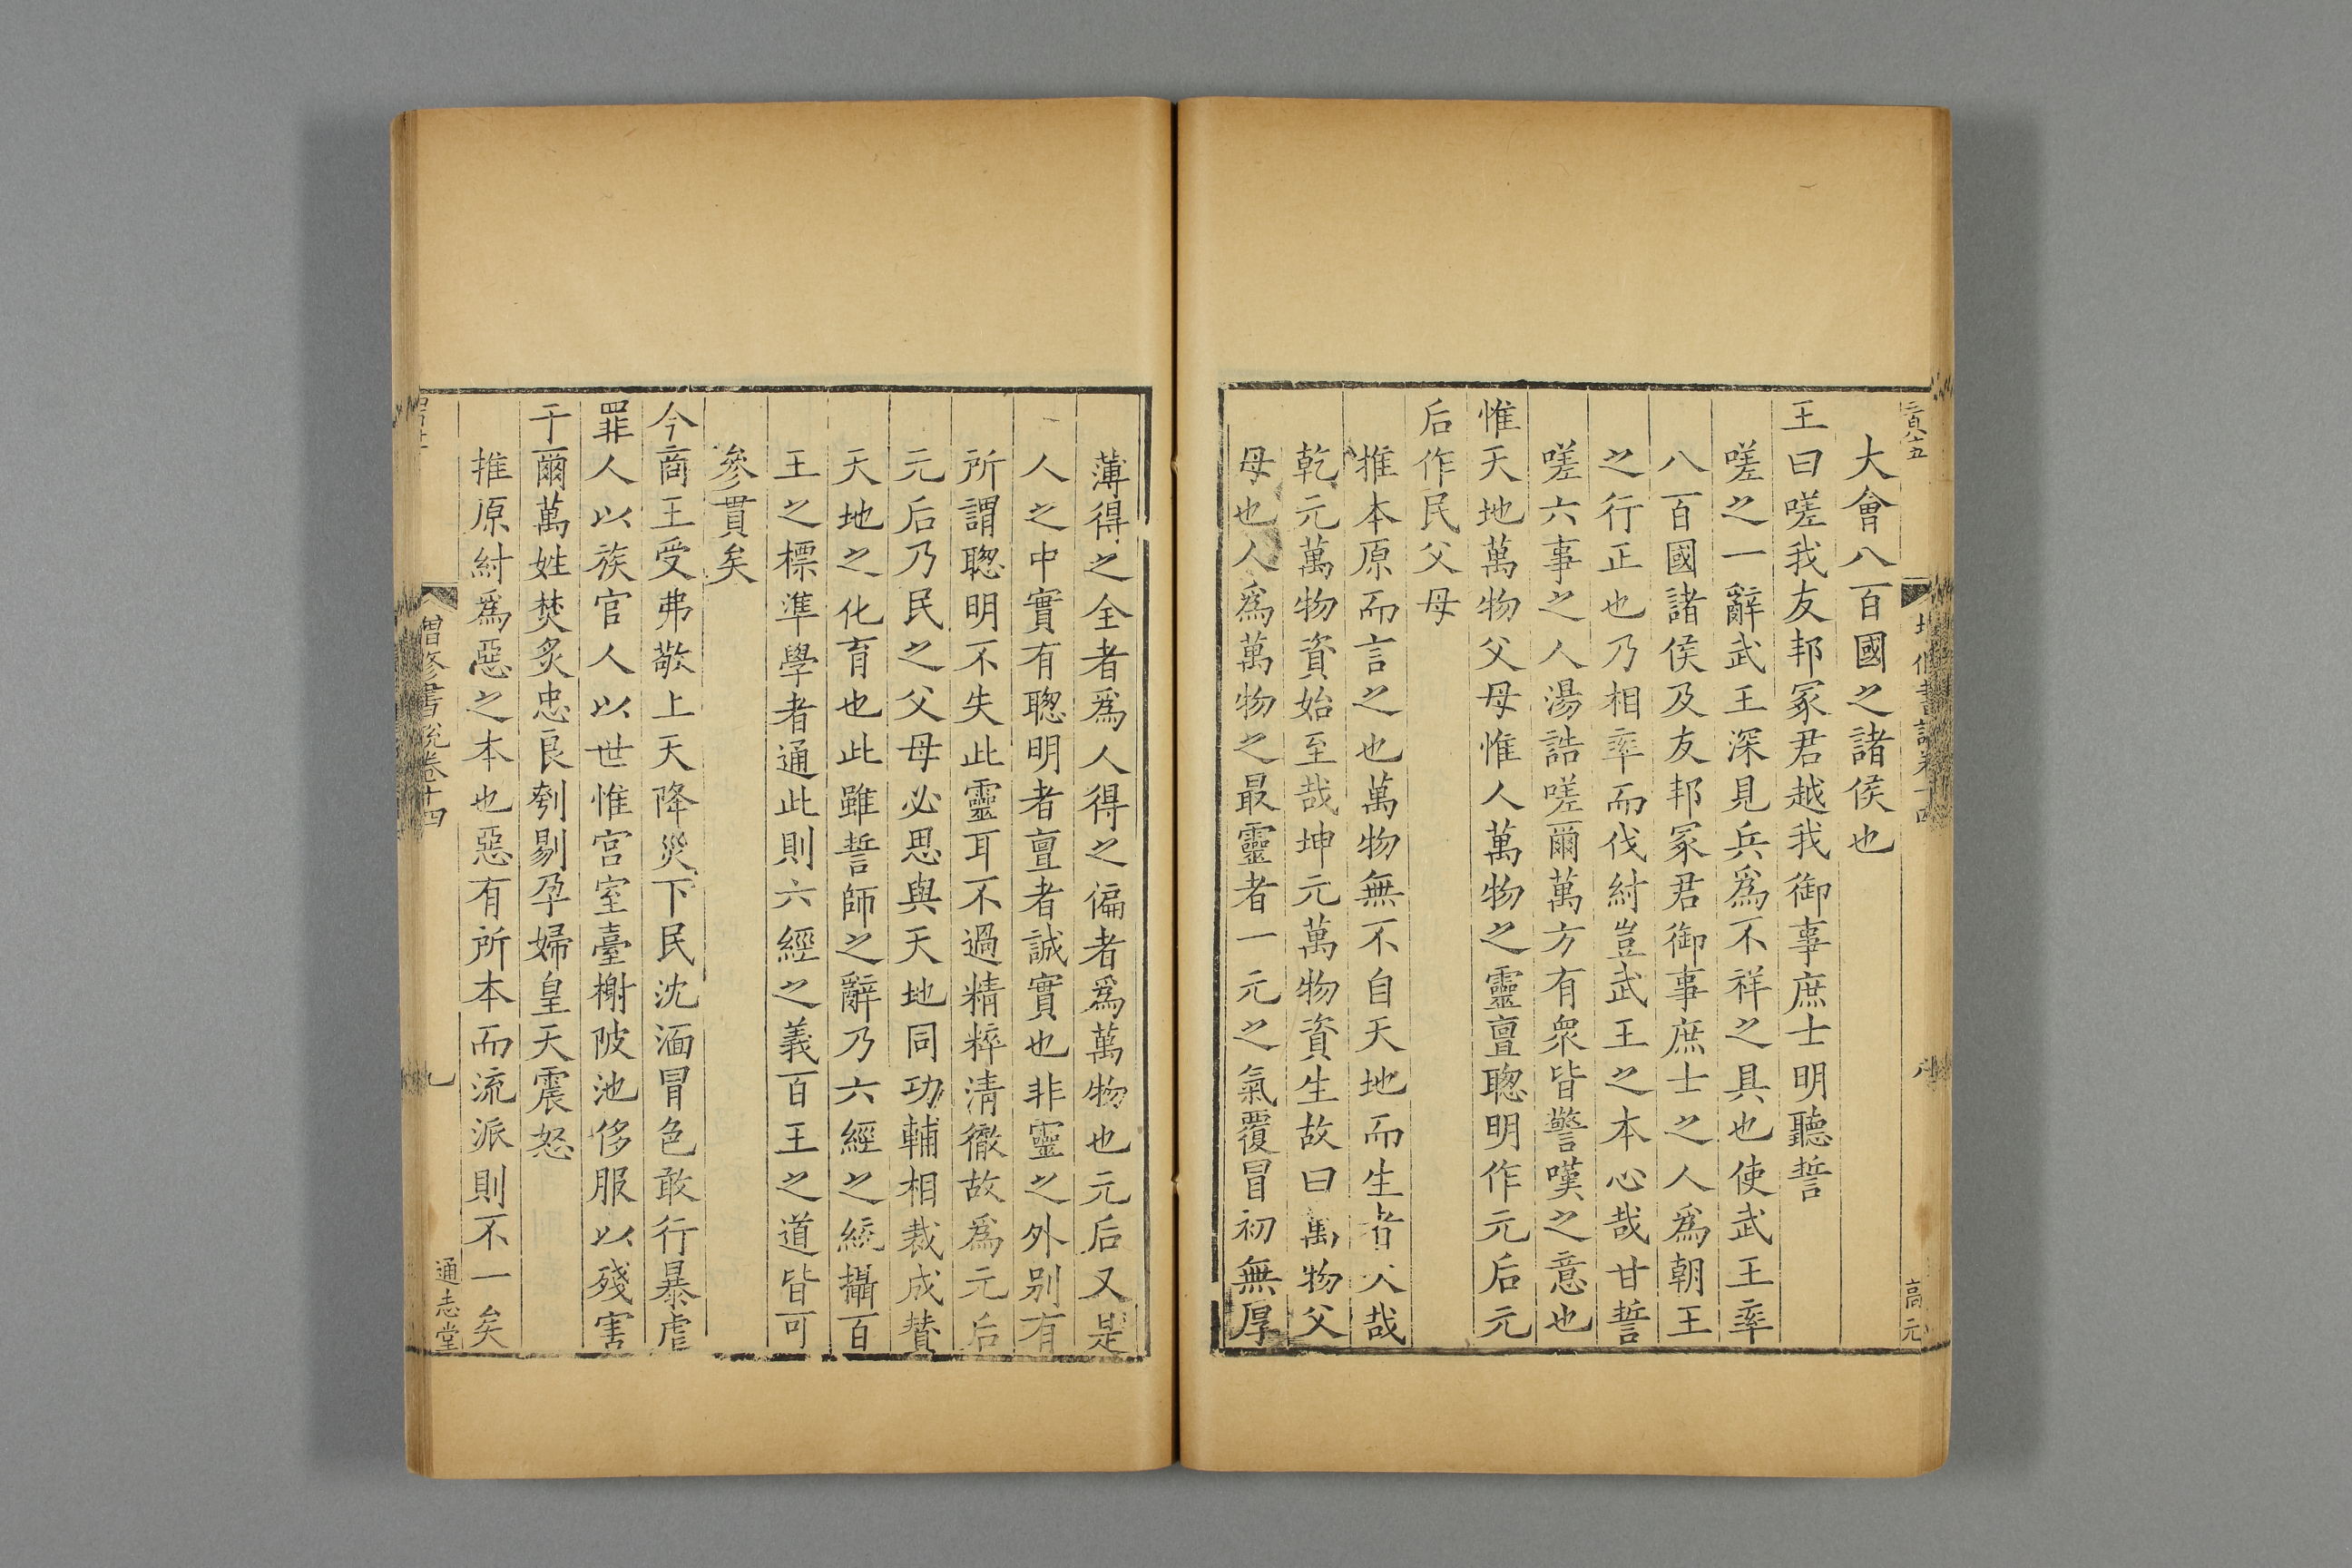 大會八百國之諸侯也
王曰嗟我友邦冢君越我御事庶士明聽誓
嗟之一辭武王深見兵爲不祥之具也使武王率
八百國諸侯及友邦冢君御事庶士之人爲朝王
之行正也乃相率而伐紂豈武王之本心哉甘誓
嗟六事之人湯誥嗟爾萬方有衆皆警嘆之意也
惟天地萬物父母惟人萬物之靈亶聰明作元后元
后作民父母
推本原而言之也萬物無不自天地而生者大哉
乾元萬物資始至哉坤元萬物資生故曰萬物父
母也人爲萬物之最靈者一元之氣覆冒初無厚
薄得之全者爲人得之偏者爲萬物也元后又是
人之中實有聰明者亶者誠實也非靈之外别有
所謂聰明不失此靈耳不過精粹清徹故爲元后
元后乃民之父母必思與天地同功輔相裁成贊
天地之化育也此雖誓師之辭乃六經之統攝百
王之標準學者通此則六經之義百王之道皆可
參貫矣
今商王受弗敬上天降災下民沈湎冒色敢行暴虐
罪人以族官人以世惟宫室臺榭陂池侈服以殘害
于爾萬姓焚炙忠良刳剔孕婦皇天震怒
推原紂爲惡之本也惡有所本而流派則不一矣
增修書説卷十四
九
通志堂
高元